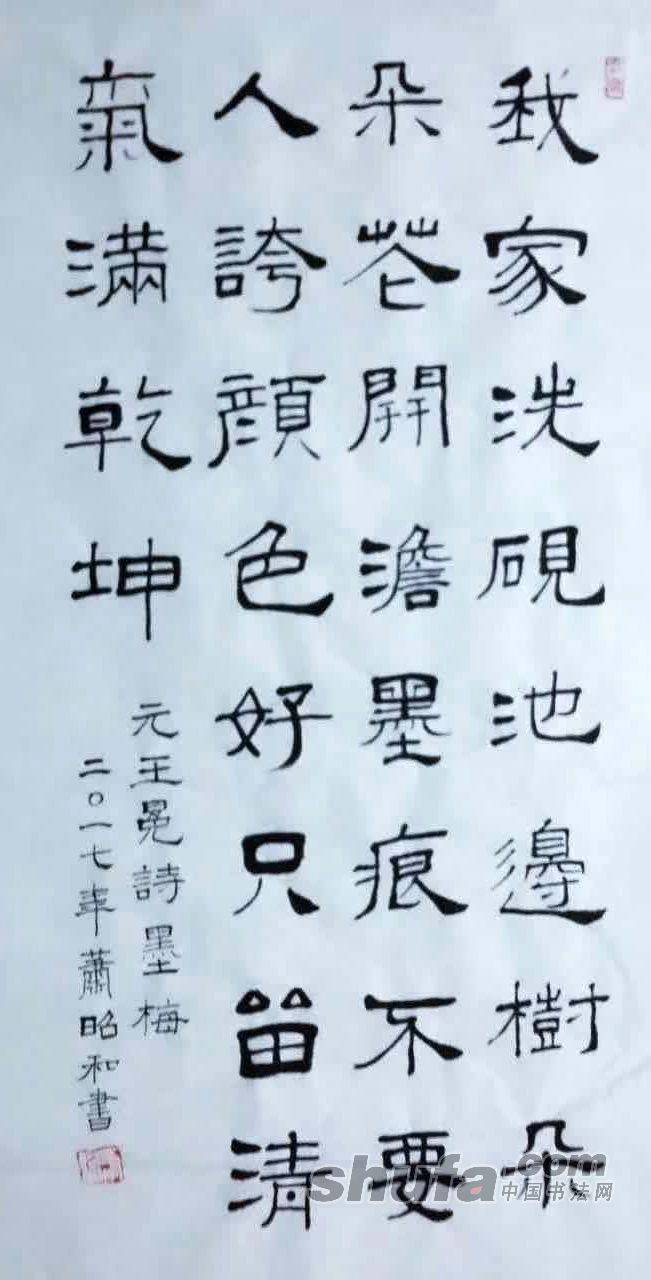 我家洗硯池邊樹朵
朵花開澹墨痕不要
人誇顏色好只留清
氣滿乾坤
元王冕詩墨梅
二〇一七年蕭昭和書
shufa.com
中国书法网